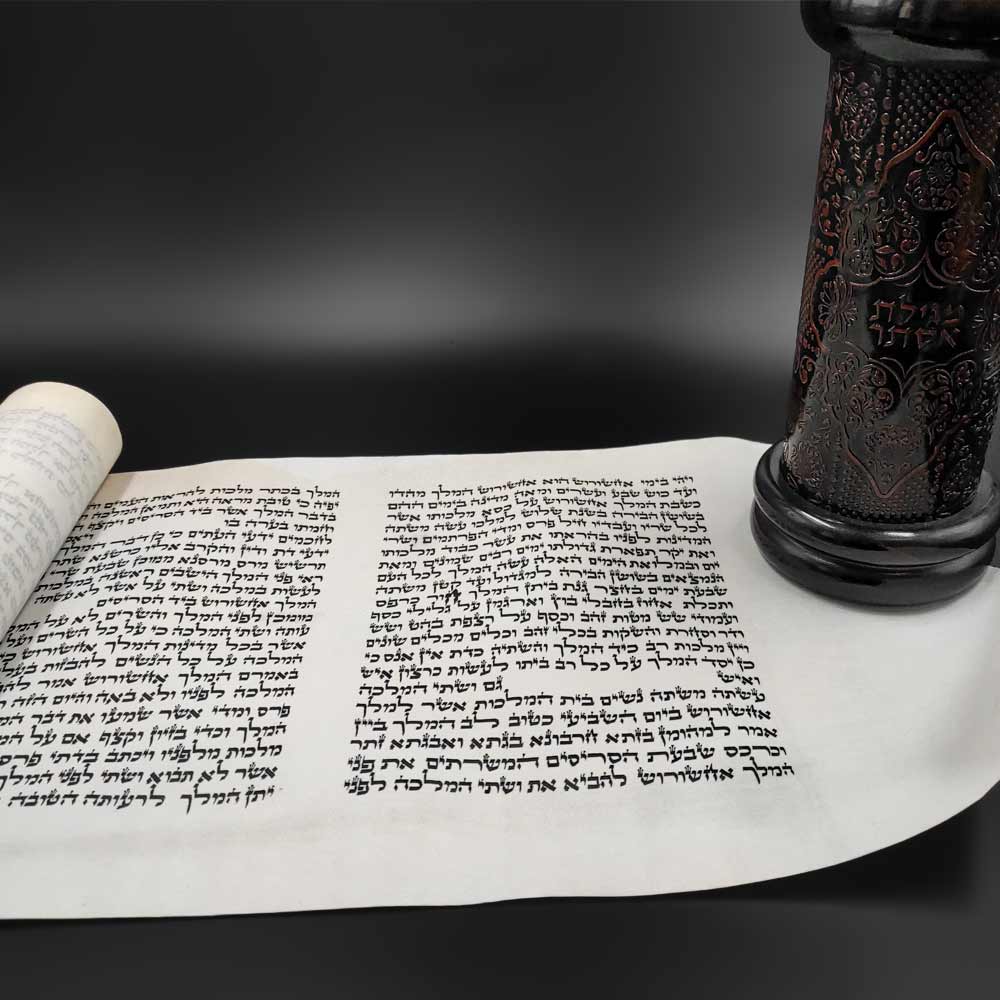 מגילת
אסתר
ויהי בימי אחשורוש הוא אחשורוש המלך מהדו
ועד כוש שבע ועשרים ומאה מדינה בימים ההם
כשבת המלך אחשורוש על כסא מלכותו אשר
בשושן הבירה בשנת שלוש למלכו עשה משתה
לכל שריו ועבדיו חיל פרס ומדי הפרתמים ושרי
המדינות לפניו בהראתו את עשר כבוד מלכותו
ואת יקר תפארת גדולתו ימים רבים שמונים ומאת
יום ובמלואת הימים האלה עשה המלך לכל העם
הנמצאים בשושן הבירה למגדול ועד קטן משתה
שבעת ימים בחצר גנת ביתן המלך חור כרפס
ותכלת אחוז בחבלי בוץ וארגמן על גלילי כסף
ועמודי שש מטות זהב וכסף על רצפת בהט ושש
ודר וסחרת והשקות בכלי זהב וכלים מכלים שונים
ויין מלכות רב כיד המלך והשתיה כדת אין אנס כי
כן יסד המלך על כל רב ביתו לעשות כרצון איש
ואיש
גם ושתי המלכה
עשתה משתה נשים בית המלכות אשר למלך
אחשורוש ביום השביעי כטוב לב המלך ביין
אמר למהומן בזתא חרבונא בגתא ואבגתא זתר
וכרכס שבעת הסריסים המשרתים את פני
המלך אחשורוש להביא את ושתי המלכה לפני
המלך בכתר מלכות להראות העמים
יפיה כי טובת מראה היא ותמאן המלכה
בדבר המלך אשר ביד הסריסים ויקצף
וחמתו בערה בו
לחכמים ידעי העתים כי כן דבר המלך
ידעי דת ודין והקרב אליו כרשנא שתר
תרשיש מרס מרסנא ממוכן שבעת שרי
ראי פני המלך הישבים ראשנה במלכות
לעשות במלכה ושתי על אשר לא עשתה
המלך אחשורוש ביד הסריסים
מומכן לפני המלך והשרים לא על המלך
עותה ושתי המלכה כי על כל השרים ועל
אשר בכל מדינות המלך אחשורוש
המלכה על כל הנשים להבזות
באמרם המלך אחשורוש אמר
המלכה לפניו ולא באה והיום הזה
פרס ומדי אשר שמעו את דבר
המלך וכדי בזיון וקצף אם על
מלכות מלפניו ויכתב בדתי פרס
אשר לא תבוא ושתי לפני המלך
יתן המלך לרעותה הטובה